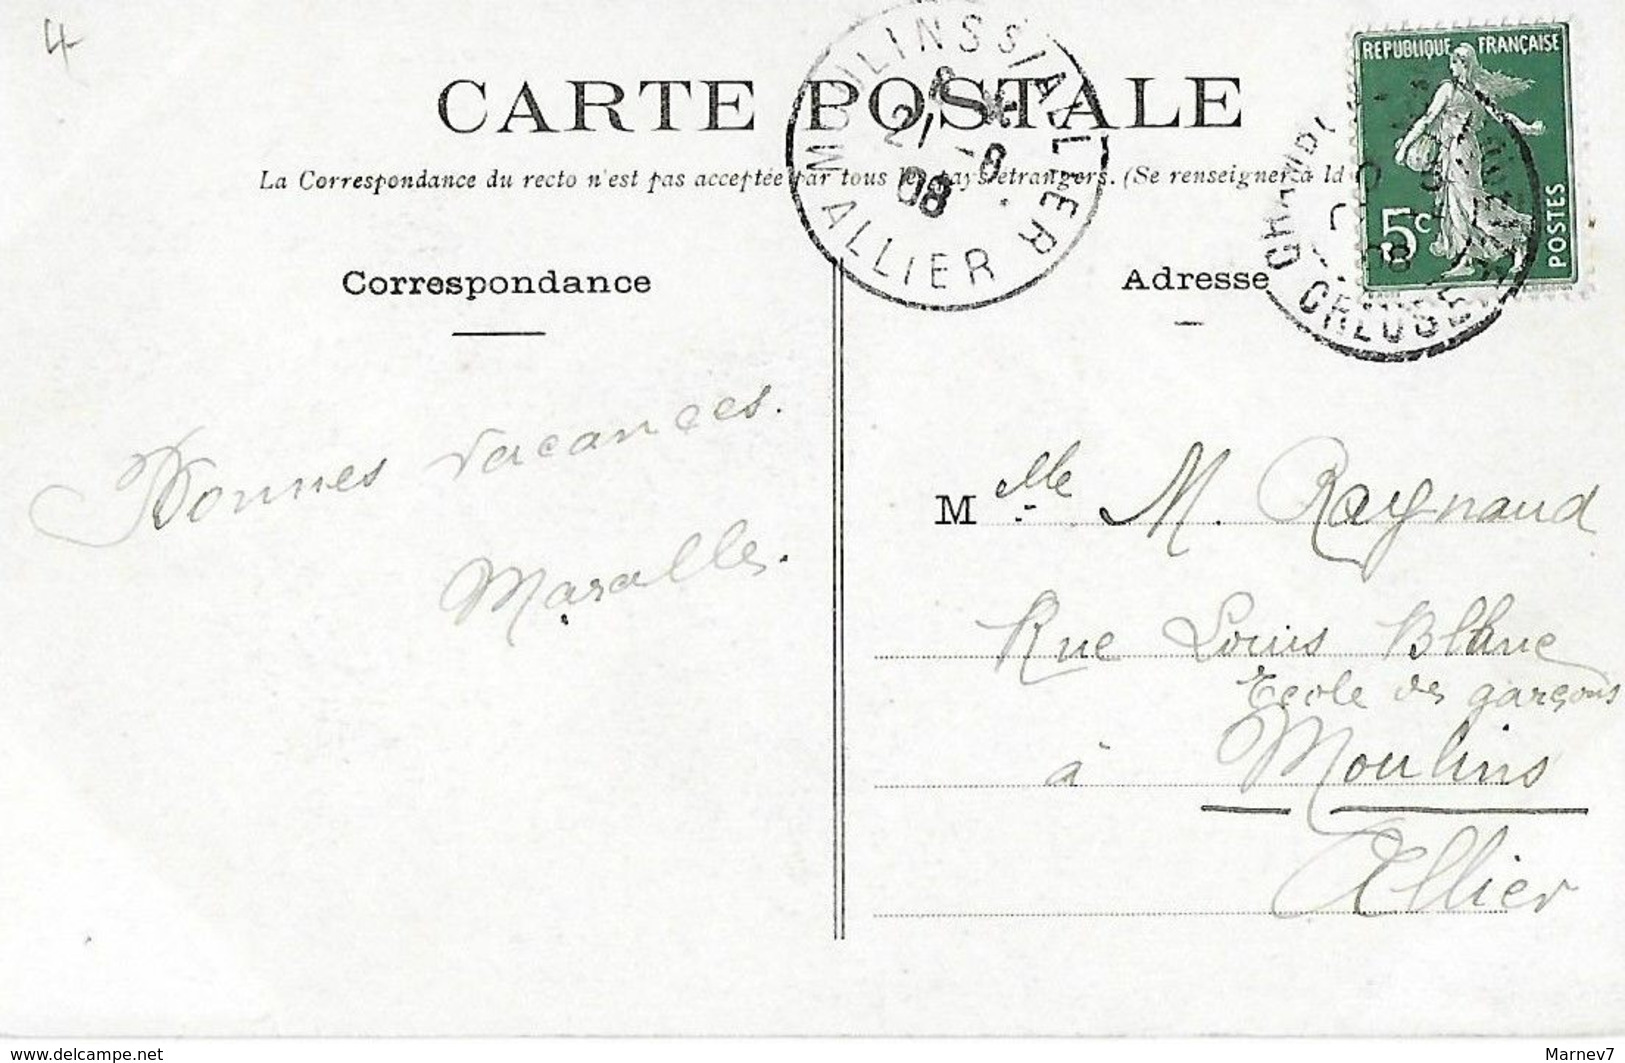 4
CARTE POSTALE
La Correspondance du recto n'est pas acceptée par tous les pays étrangers. (Se renseigner à la
MOULINS S/ ALLIER
21 - 8
08
ALLIER
REPUBLIQUE FRANÇAISE
5c
POSTES
CREUSE
08
Correspondance
Adresse
Bonnes vacances.
M elle M. Raynaud
Rue Louis Blanc
Ecole des garçons
à Moulins
Allier
www.delcampe.net
Marnev7